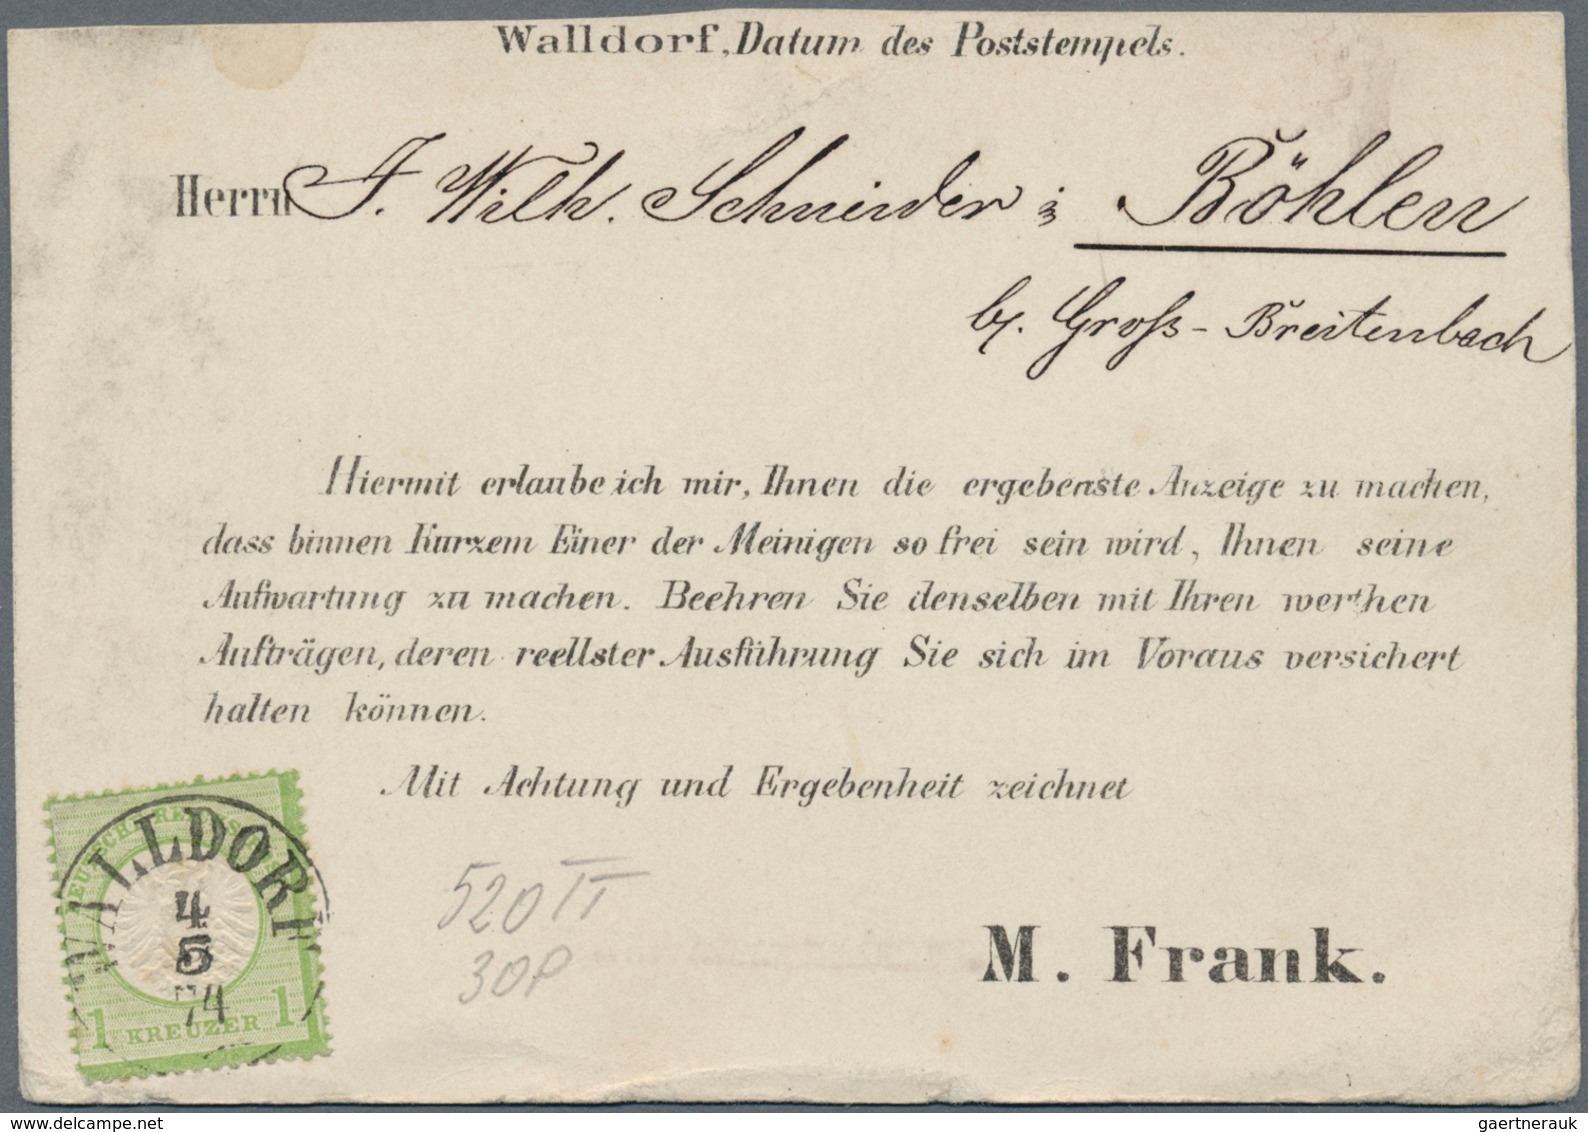 Walldorf, Datum des Poststempels.
Herrn J. Wilh. Schneider i Böhlen
b/. Gross-Breitenbach
Hiermit erlaube ich mir, Ihnen die ergebenste Anzeige zu machen,
dass binnen Kurzem Einer der Meinigen so frei sein wird, Ihnen seine
Aufwartung zu machen. Beehren Sie denselben mit Ihren werthen
Aufträgen, deren reellster Ausführung Sie sich im Voraus versichert
halten können.
Mit Achtung und Ergebenheit zeichnet
M. Frank.
WALLDORF
4
5
74
1 KREUZER 1
520 II
30P
gaertnerauk